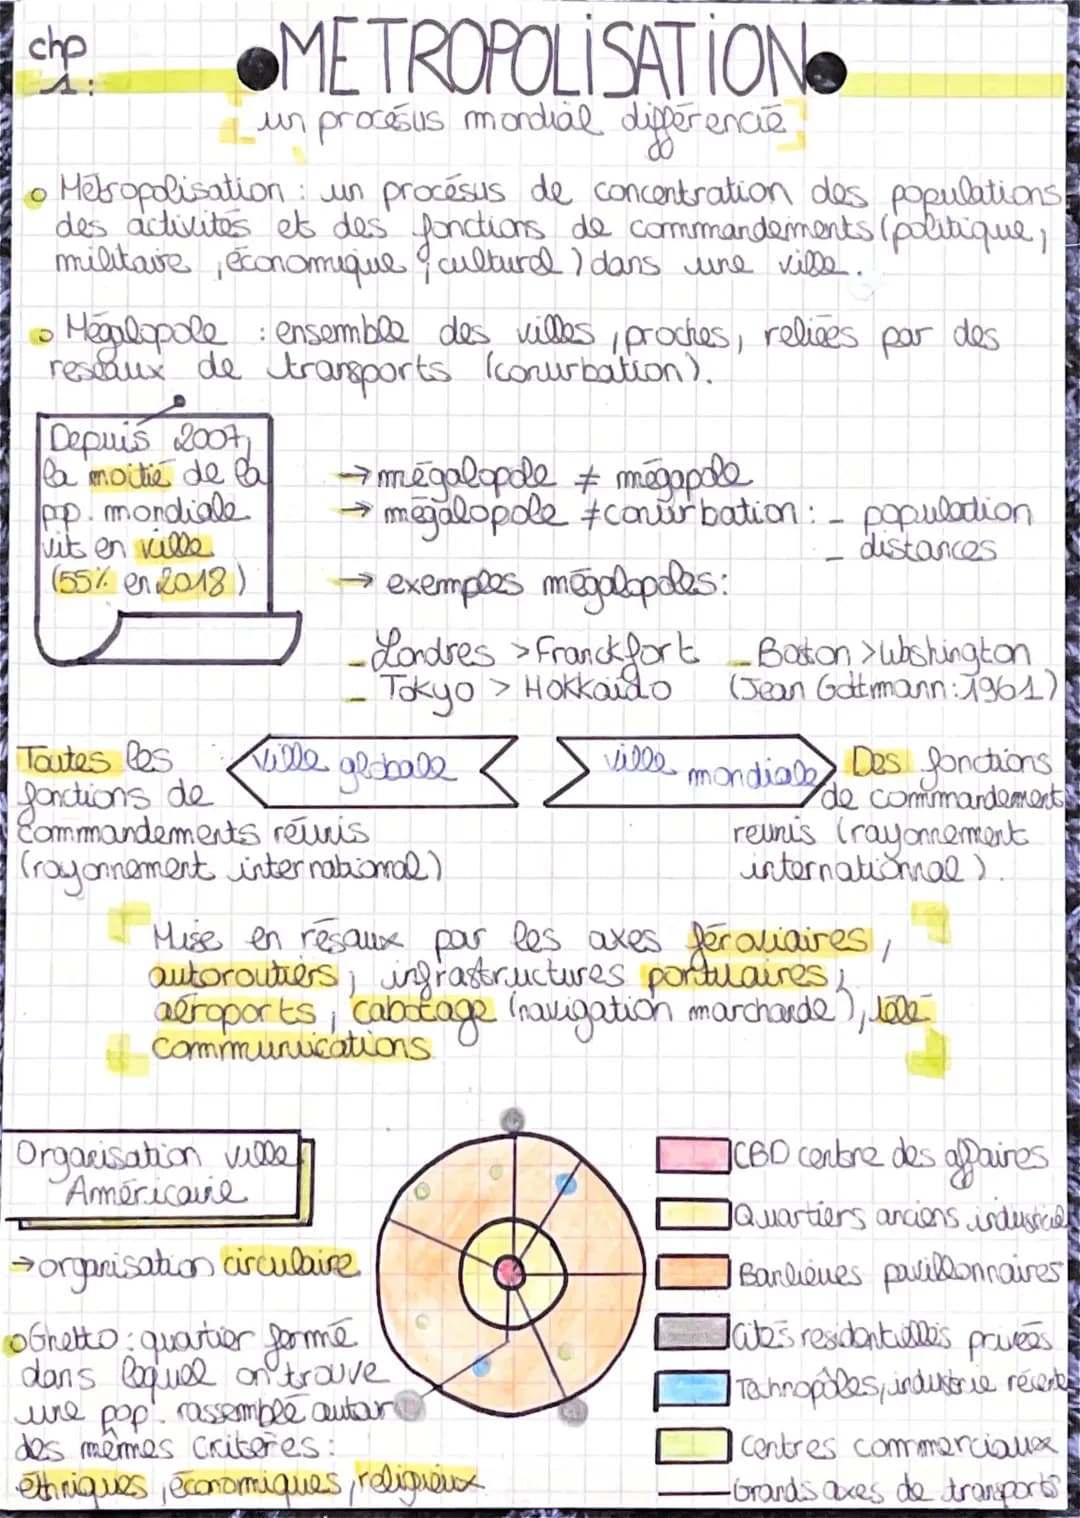 chp
1:
METROPOLiSATiON
un procésus mondial différencié
Métropolisation : un procésus de concentration des populations
des activités et des fonctions de commandements (politique,
militaire, économique & culturel) dans une ville.
Mégalopole : ensemble des villes, proches, reliées par des
reseaux de transports (conurbation).
Depuis 2007,
la moitié de la
pop. mondiale
vit en ville
(55% en 2018)
→ mégalopole ≠ mégapole
→ mégalopole ≠ conurbation : - population
- distances
→ exemples mégalopoles:
- Londres > Franckfort
- Boston > Washington
- Tokyo > Hokkaido
(Jean Gottmann: 1961)
Ville globale
ville mondiale
Toutes les
fonctions de
commandements réunis
(rayonnement international)
Des fonctions
de commandement
reunis (rayonnement
internationnal).
Mise en résaux par les axes féroviaires,
autoroutiers, infrastructures portuaires,
aéroports, cabotage (navigation marchande), télé-
communications
Organisation ville
Américaine
→ organisation circulaire
Ghetto : quartier fermé
dans lequel on trouve
une pop. rassemblé autour
des mêmes critères :
éthniques, économiques, religieux
CBD centre des affaires
Quartiers anciens industriel
Banlieues pavillonnaires
Cités residentielles privées
Technopôles, industrie récente
Centres commerciaux
Grands axes de transports